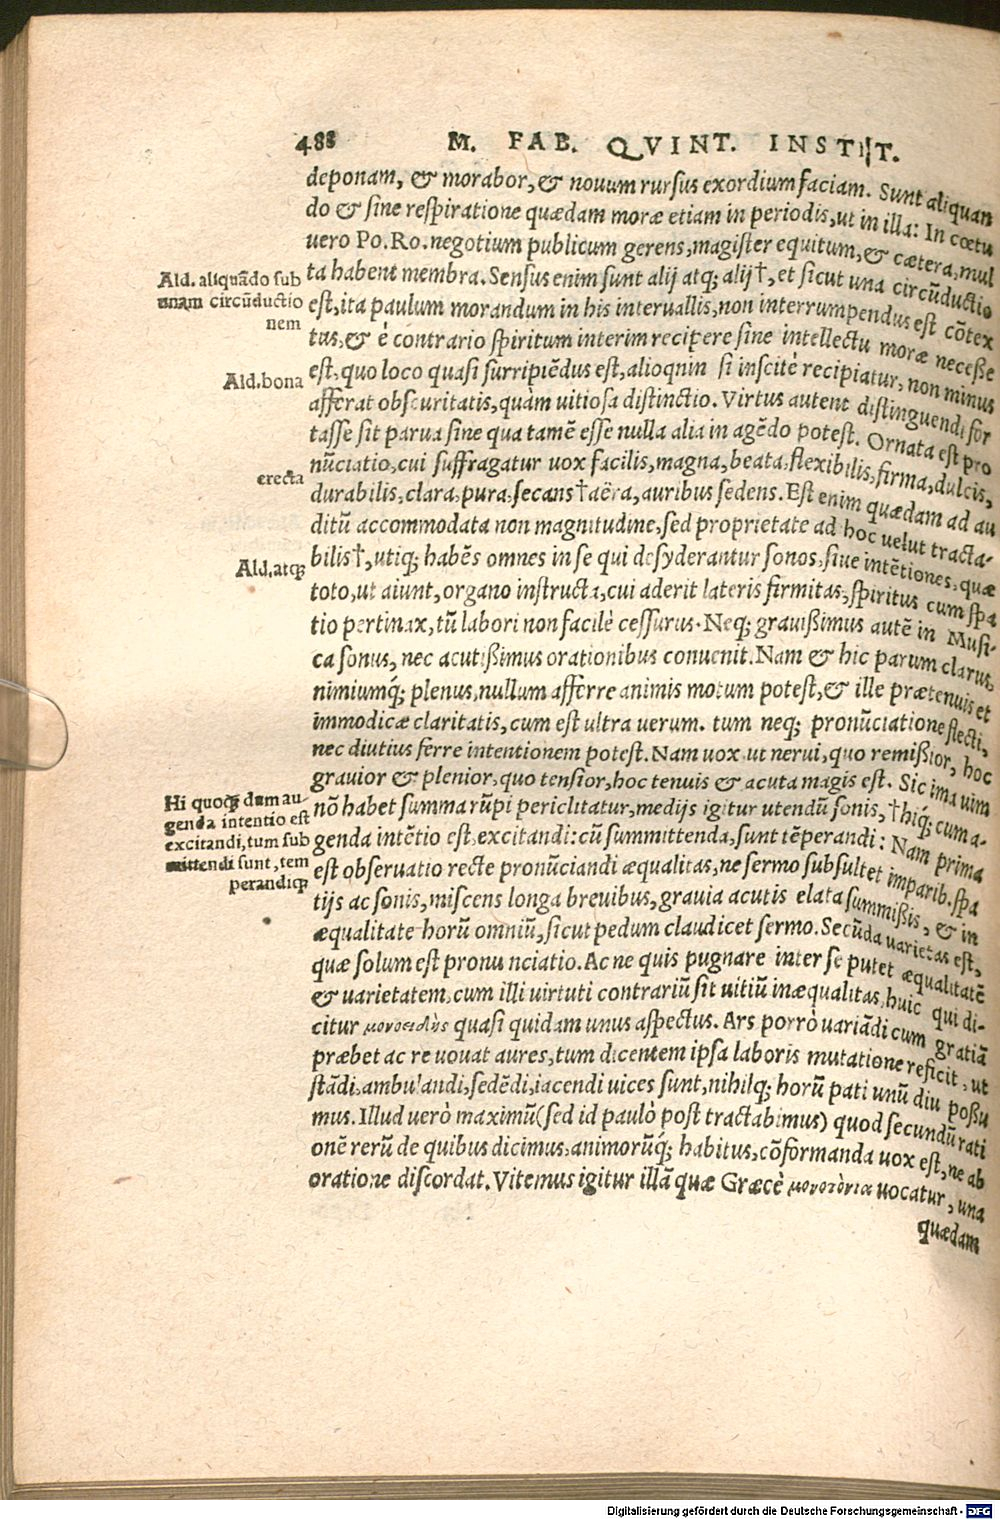 488 M. FAB. QVINT. INSTIT.
deponam, & morabor, & nouum rursus exordium faciam. Sunt aliquan
do & sine respiratione quædam moræ etiam in periodis, ut in illa: In cœtu
uero Po. Ro. negotium publicum gerens, magister equitum, & cætera, mul
ta habent membra. Sensus enim sunt alij atq; alij†, et sicut una circũductio
est, ita paulum morandum in his interuallis, non interrumpendus est cõtex
tus, & è contrario spiritum interim recipere sine intellectu moræ necesse
est, quo loco quasi surripiẽdus est, alioqnin si inscitè recipiatur, non minus
afferat obscuritatis, quam uitiosa distinctio. Virtus autent distinguendi for
tasse sit parua sine qua tamẽ esse nulla alia in agẽdo potest. Ornata est pro
nũciatio, cui suffragatur uox facilis, magna, beata, flexibilis, firma, dulcis,
durabilis, clara, pura, secans†aëra, auribus sedens. Est enim quædam ad au
ditũ accommodata non magnitudine, sed proprietate ad hoc uelut tracta-
bilis†, utiq; habẽs omnes in se qui desyderantur sonos, siue intẽtiones, quæ
toto, ut aiunt, organo instructa, cui aderit lateris firmitas, spiritus cum spa
tio pertinax, tũ labori non facilè cessurus. Neq; grauissimus autẽ in Musi-
ca sonus, nec acutissimus orationibus conuenit. Nam & hic parum clarus,
nimiumq́; plenus, nullum afferre animis motum potest, & ille prætenuis et
immodicæ claritatis, cum est ultra uerum. tum neq; pronũciatione flecti,
nec diutius ferre intentionem potest. Nam uox ut nerui, quo remissior, hoc
grauior & plenior, quo tensior, hoc tenuis & acuta magis est. Sic ima uim
nõ habet summa rũpi periclitatur, medijs igitur utendũ sonis, †hiq́; cum a-
genda intẽtio est, excitandi: cũ summittenda, sunt tẽperandi: Nam prima
est obseruatio recte pronũciandi æqualitas, ne sermo subsultet imparib. spa
tijs ac sonis, miscens longa breuibus, grauia acutis elata summissis, & in
æqualitate horũ omniũ, sicut pedum claudicet sermo. Secũda uarietas est,
quæ solum est pronunciatio. Ac ne quis pugnare inter se putet æqualitatẽ
& uarietatem, cum illi uirtuti contrariũ sit uitiũ inæqualitas, huic qui di-
citur μονοειδὴς quasi quidam unus aspectus. Ars porrò uariãdi cum gratiã
præbet ac reuouat aures, tum dicentem ipsa laboris mutatione reficit, ut
stãdi, ambulandi, sedẽdi, iacendi uices sunt, nihilq; horũ pati unũ diu possu
mus. Illud uerò maximũ (sed id paulò post tractabimus) quod secundũ rati
onẽ rerũ de quibus dicimus, animorũq́; habitus, cõformanda uox est, ne ab
oratione discordat. Vitemus igitur illã quæ Græcè μονοτόνια uocatur, una
quædam
Ald. aliquãdo sub
unam circũductio
nem
Ald. bona
erecta
Ald. atq;
Hi quoq; dum au-
genda intentio est
excitandi, tum sub
mittendi sunt, tem
perandiq;
Digitalisierung gefördert durch die Deutsche Forschungsgemeinschaft - DFG